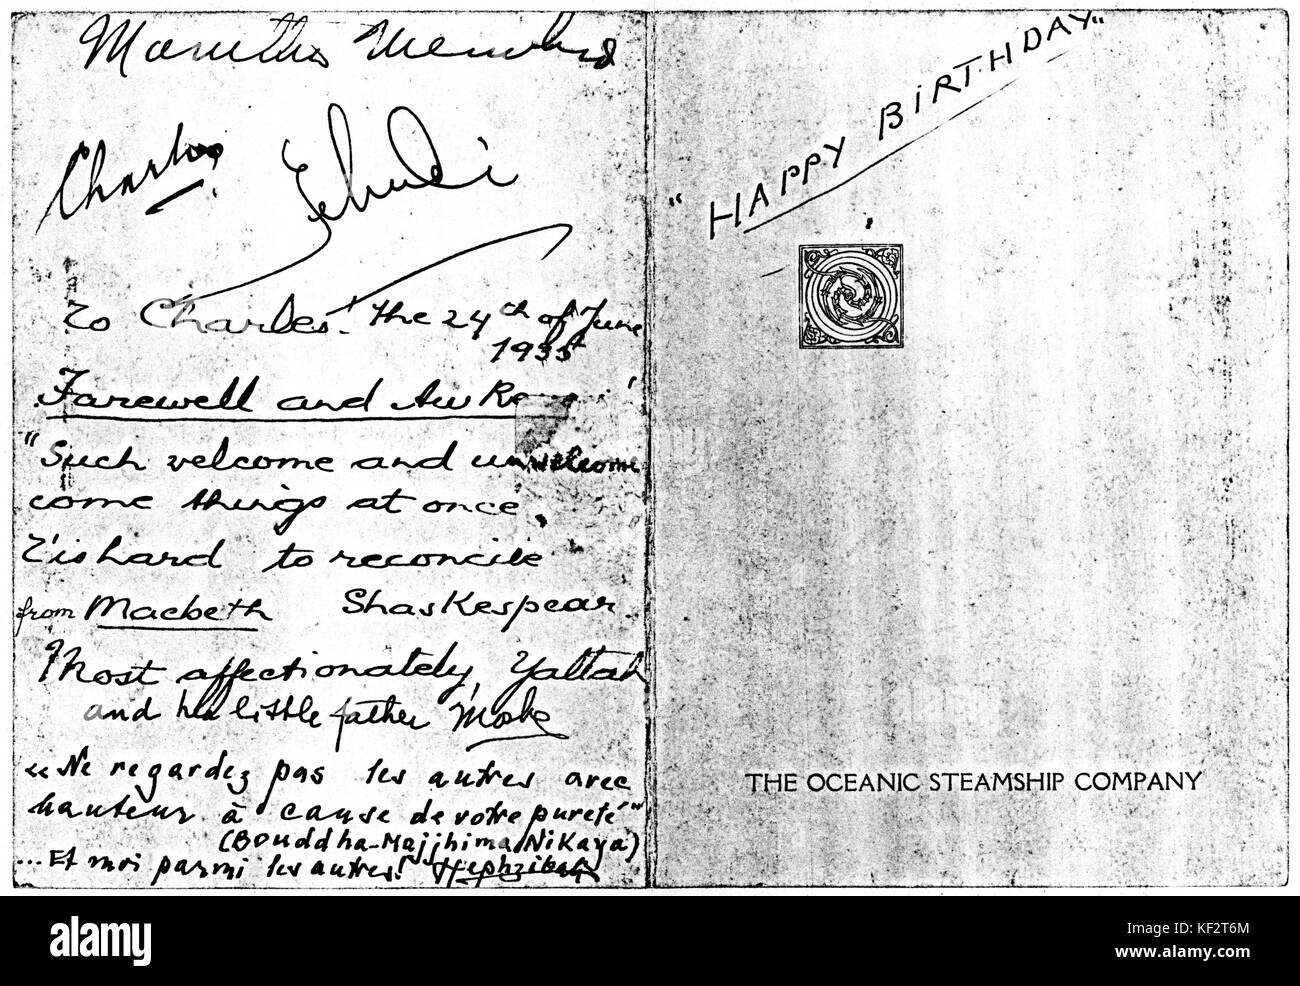 Marutha Menuhin
Charles.
Yehudi
To Charles. the 24th of June
1935
Farewell and Au
"Such welcome and unwelcome
come things at once,
T'is hard to reconcile
from Macbeth Shaskespear.
Most affectionately, Yaltah
and her little father Moshe
"Ne regardez pas les autres avec
hauteur à cause de votre pureté"
(Bouddha-Majjhima Nikaya)
... Et moi parmi les autres! Hephzibah
"HAPPY BIRTHDAY"
THE OCEANIC STEAMSHIP COMPANY
alamy
alamy
Image ID: KF2T6M
www.alamy.com